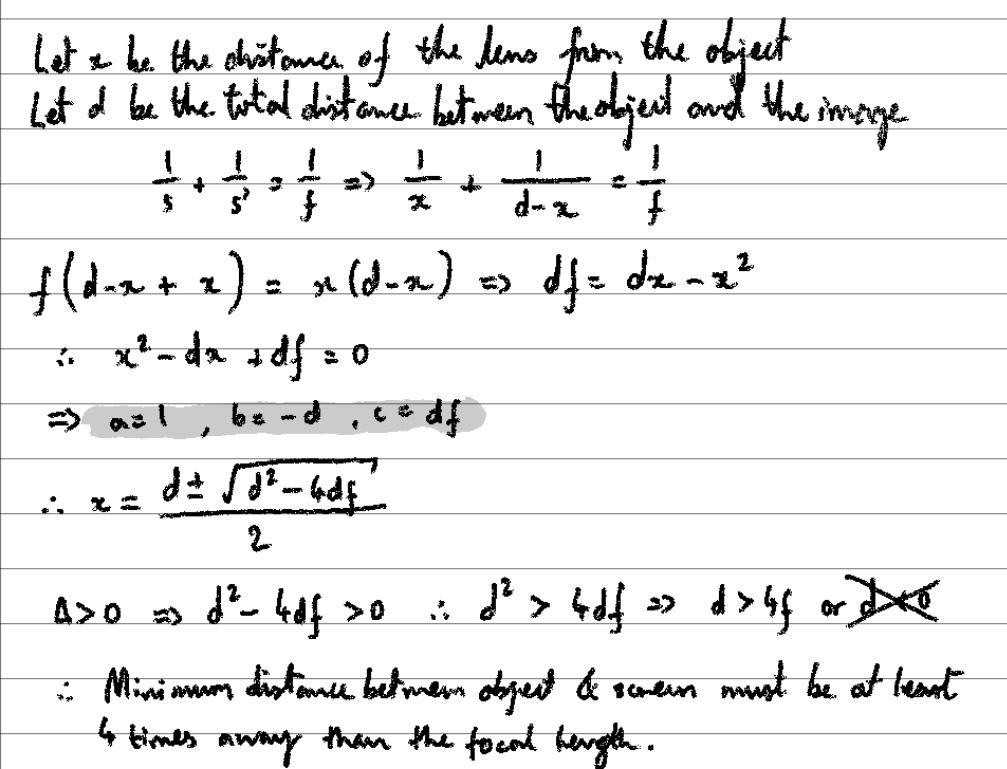 Let x be the distance of the lens from the object
Let d be the total distance between the object and the image
1/s + 1/s' = 1/f => 1/x + 1/(d-x) = 1/f
f(d-x + x) = x(d-x) => df = dx - x²
∴ x² - dx + df = 0
=> a=1, b=-d, c=df
∴ x = (d ± √(d² - 4df))/2
Δ>0 => d² - 4df >0 ∴ d² > 4df => d>4f or d<0
∴ Minimum distance between object & screen must be at least
4 times away than the focal length.